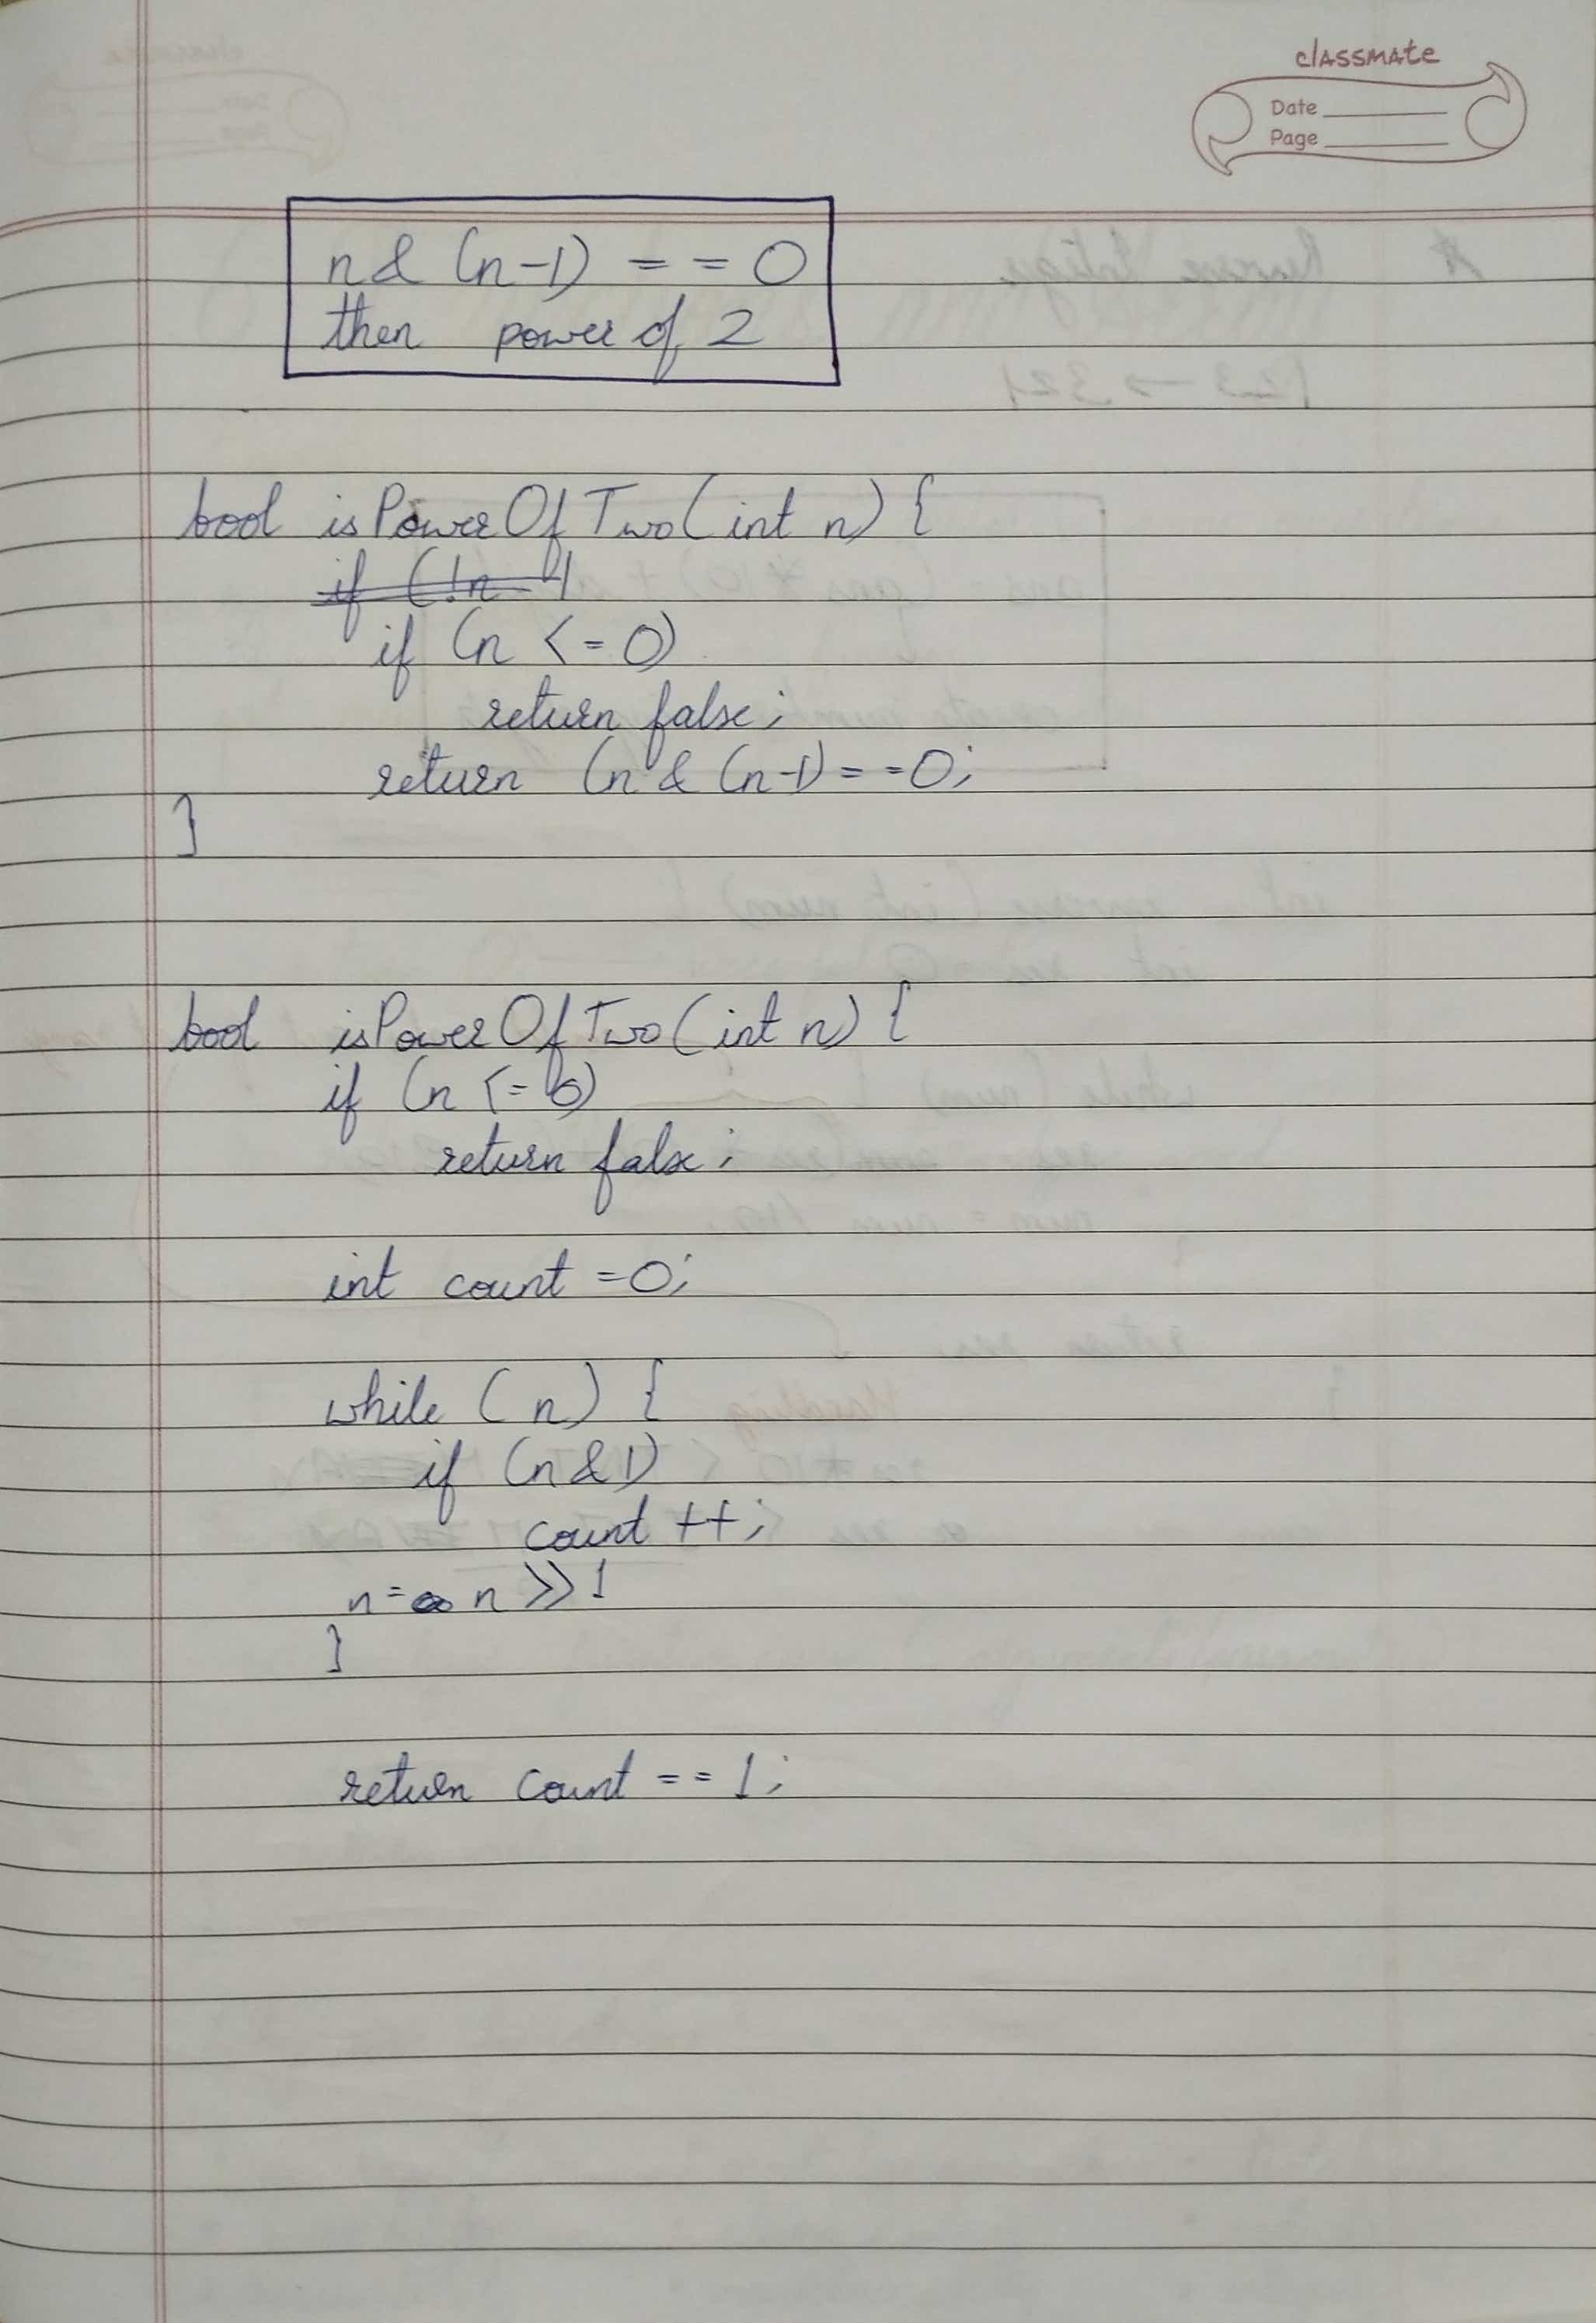 classmate
Date
Page
n & (n-1) == 0
then power of 2
bool isPowerOfTwo(int n) {
if (!n
if (n <= 0)
return false;
return (n & (n-1) == 0;
}
bool isPowerOfTwo(int n) {
if (n <= 0)
return false;
int count = 0;
while (n) {
if (n & 1)
count ++;
n = n >> 1
}
return count == 1;